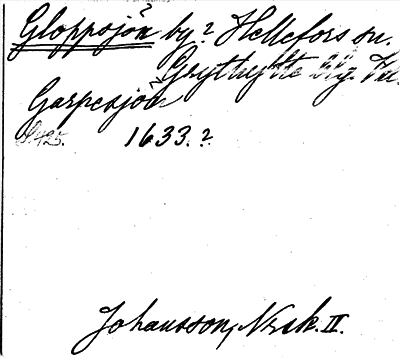 Gloppsjön? by? Hellefors sn.
Grythytte
Garpesjön
S. 425. 1633.?
Johansson, Norsk. II.